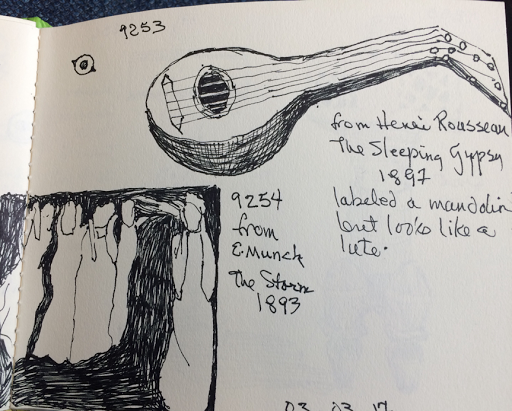 9253
from Henri Rousseau
The Sleeping Gypsy
1897
labeled a mandolin
but looks like a
lute.
9254
from
E. Munch
The Storm
1893
03 03 17